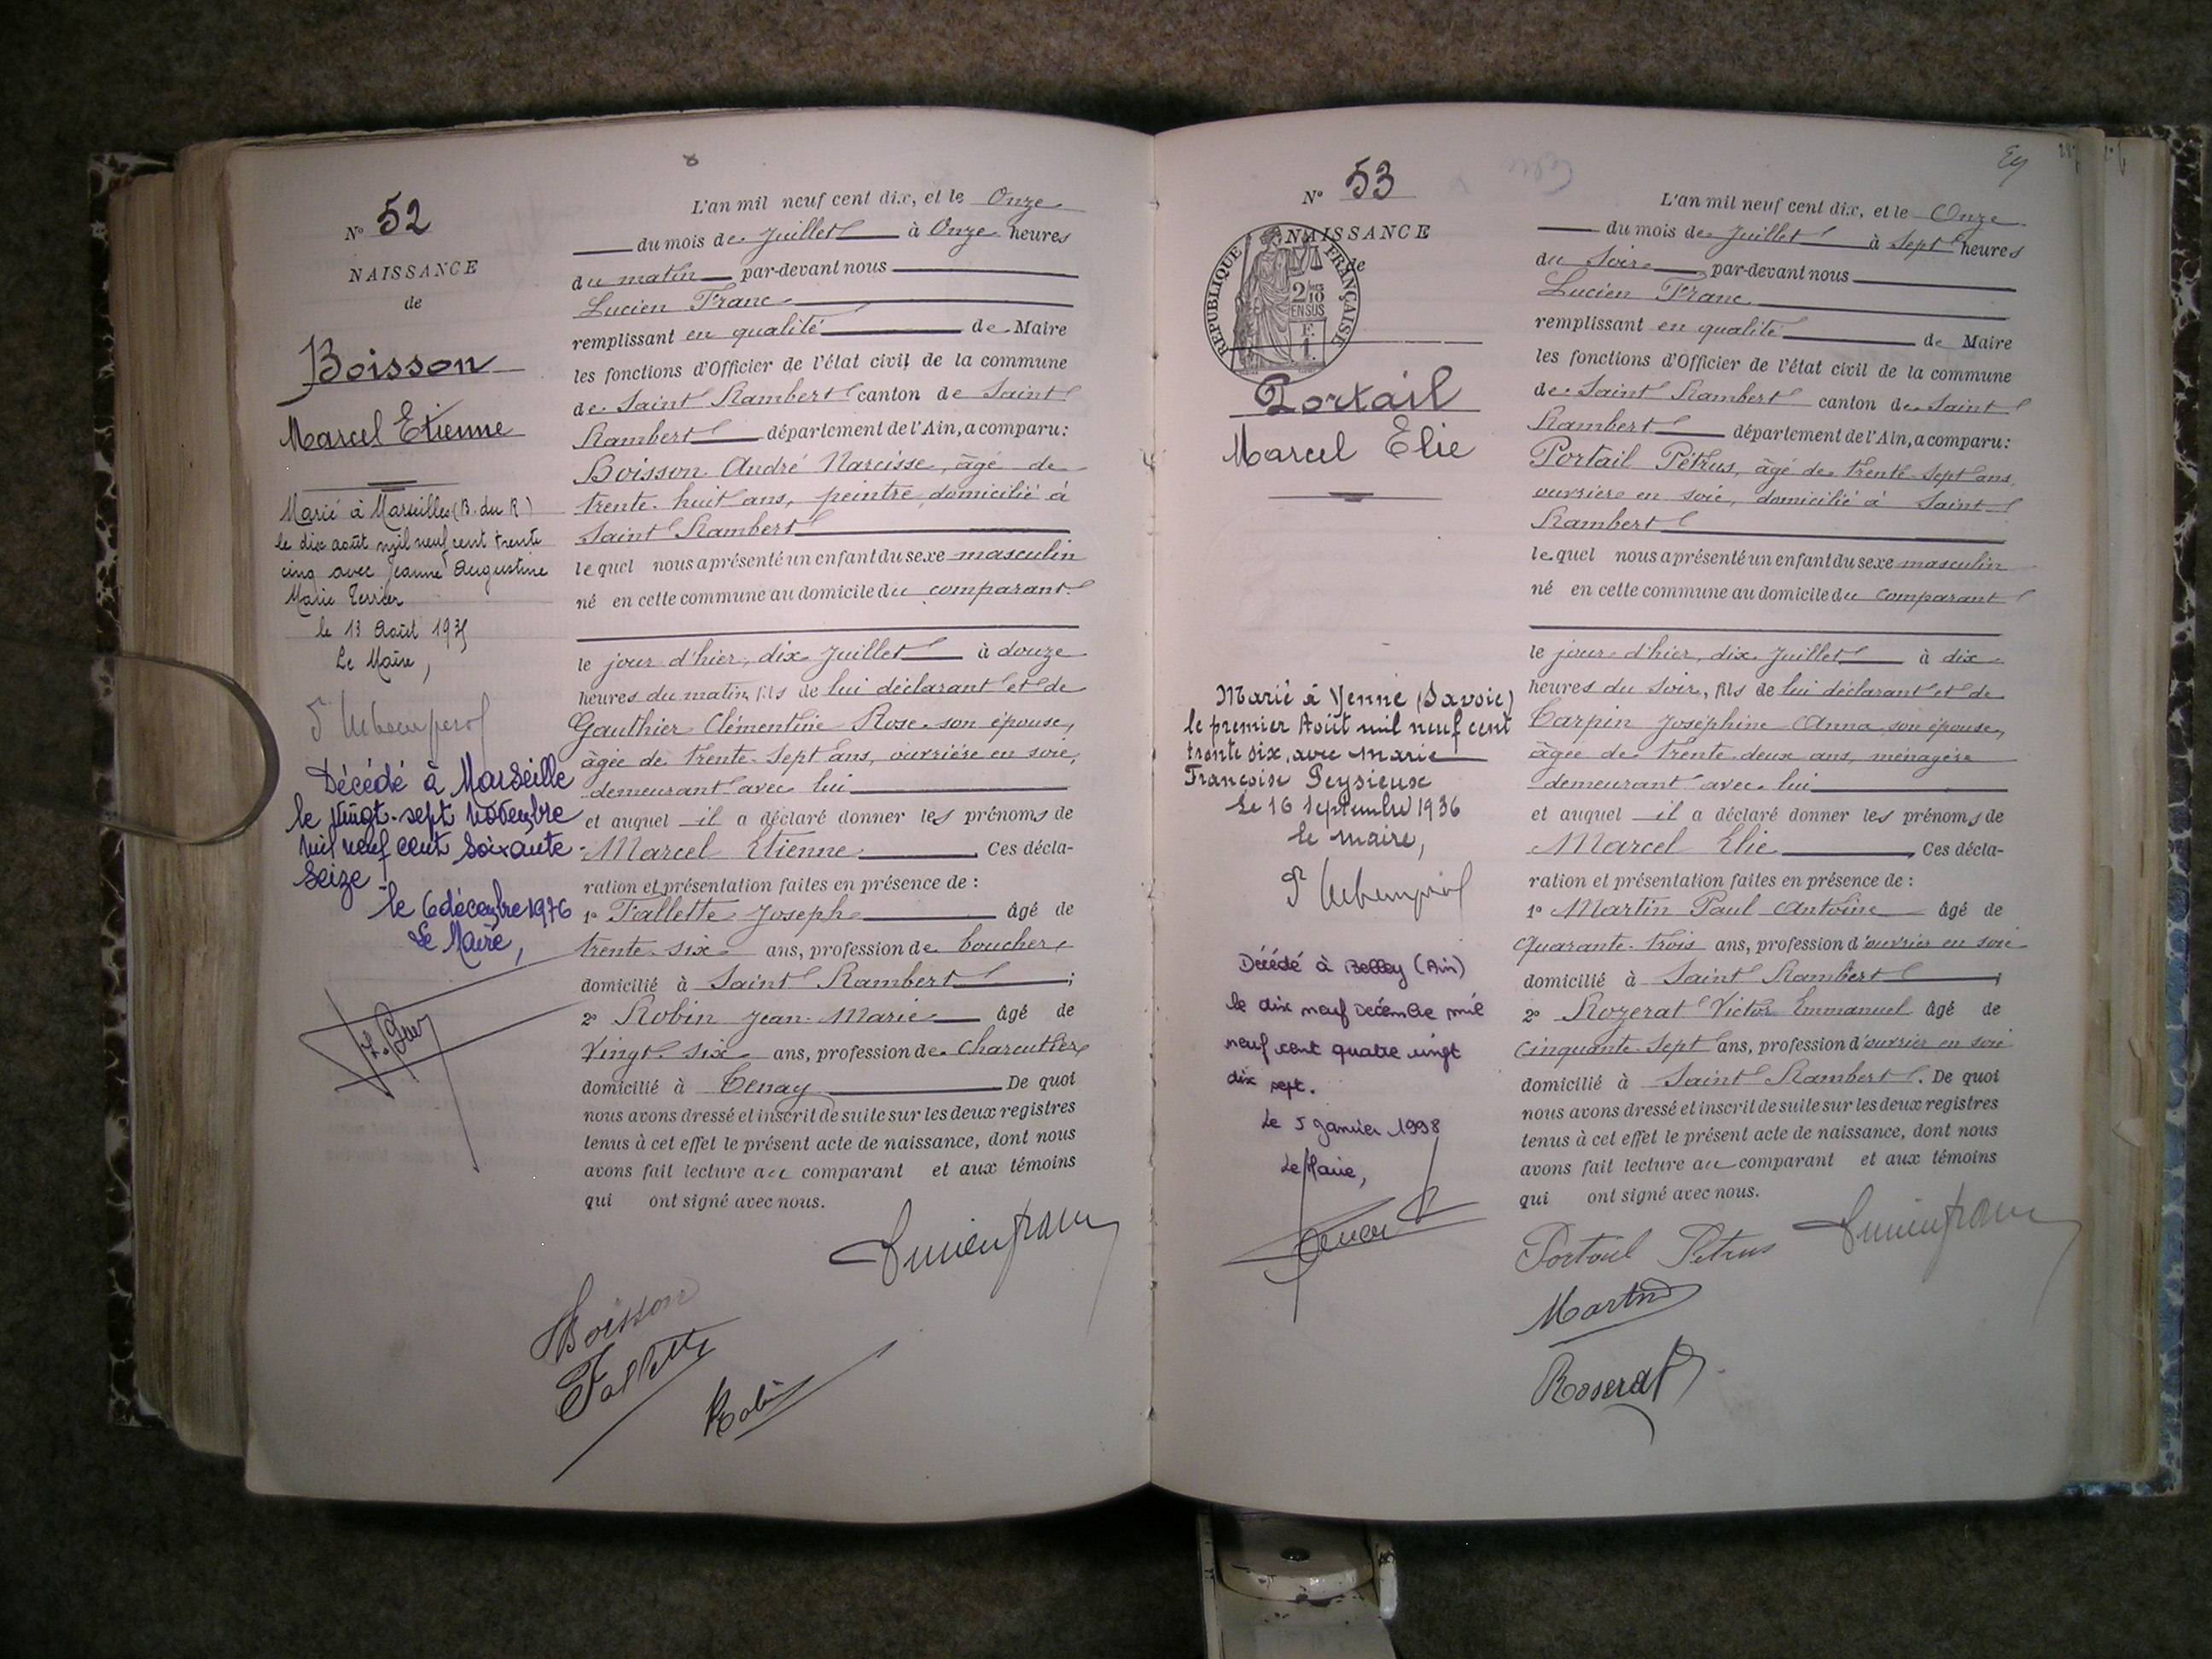 N° 52
NAISSANCE
de
Boisson
Marcel Etienne
Marié à Marseilles (B. du R)
le dix août mil neuf cent trente
cinq avec Jeanne Augustine
Marie Terrier
le 13 Août 1935
Le Maire,
Décédé à Marseille
le vingt-sept novembre
mil neuf cent soixante-
seize
le 6 décembre 1976
Le Maire,
L'an mil neuf cent dix, et le Onze
du mois de Juillet à Onze heures
du matin par-devant nous
Lucien Franc
remplissant en qualité de Maire
les fonctions d'Officier de l'état civil de la commune
de Saint Rambert canton de Saint
Rambert département de l'Ain, a comparu:
Boisson André Narcisse, âgé de
trente-huit ans, peintre, domicilié à
Saint Rambert
lequel nous a présenté un enfant du sexe masculin
né en cette commune au domicile du comparant
le jour d'hier, dix Juillet à douze
heures du matin, fils de lui déclarant et de
Gauthier Clémentine Rose son épouse,
âgée de trente-sept ans, ouvrière en soie,
demeurant avec lui
et auquel il a déclaré donner les prénoms de
Marcel Etienne. Ces décla-
ration et présentation faites en présence de :
1° Fallette Joseph âgé de
trente-six ans, profession de boucher,
domicilié à Saint Rambert ;
2° Robin Jean-Marie âgé de
Vingt-six ans, profession de Charcutier
domicilié à Tenay De quoi
nous avons dressé et inscrit de suite sur les deux registres
tenus à cet effet le présent acte de naissance, dont nous
avons fait lecture au comparant et aux témoins
qui ont signé avec nous.
Lucien Franc
Boisson
Fallette
Robin
N° 53
NAISSANCE
de
REPUBLIQUE FRANÇAISE
2/10
EN SUS
Portail
Marcel Elie
Marié à Yenne (Savoie)
le premier Août mil neuf cent
trente six, avec Marie
Françoise Peysieux
Le 16 Septembre 1936
le maire,
Décédé à Belley (Ain)
le dix neuf Décembre mil
neuf cent quatre vingt
dix sept.
Le 5 Janvier 1998
Le Maire,
L'an mil neuf cent dix, et le Onze
du mois de Juillet à sept heures
du Soir par-devant nous
Lucien Franc
remplissant en qualité de Maire
les fonctions d'Officier de l'état civil de la commune
de Saint Rambert canton de Saint
Rambert département de l'Ain, a comparu:
Portail Pétrus, âgé de trente-sept ans,
ouvrier en soie, domicilié à Saint
Rambert
lequel nous a présenté un enfant du sexe masculin
né en cette commune au domicile du comparant
le jour d'hier, dix Juillet à dix
heures du Soir, fils de lui déclarant et de
Carpin Joséphine Anna son épouse,
âgée de trente-deux ans, ménagère
demeurant avec lui
et auquel il a déclaré donner les prénoms de
Marcel Elie, Ces décla-
ration et présentation faites en présence de :
1° Martin Paul Antoine âgé de
Quarante-trois ans, profession d'ouvrier en soie
domicilié à Saint Rambert ;
2° Rozerat Victor Emmanuel âgé de
Cinquante-Sept ans, profession d'ouvrier en soie
domicilié à Saint Rambert. De quoi
nous avons dressé et inscrit de suite sur les deux registres
tenus à cet effet le présent acte de naissance, dont nous
avons fait lecture au comparant et aux témoins
qui ont signé avec nous.
Portail Pétrus Lucien Franc
Martin
Roserat